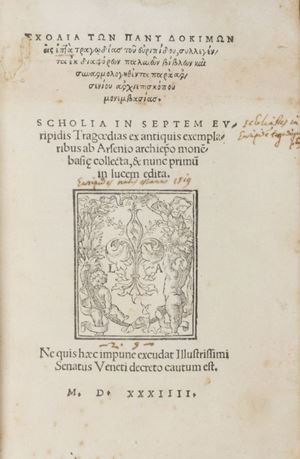 ΣΧΟΛΙΑ ΤΩΝ ΠΑΝΥ ΔΟΚΙΜΩΝ
εἰς ἑπτὰ τραγῳδίας τοῦ εὐριπίδου, συλλεγέν-
τα ἐκ διαφόρων παλαιῶν βίβλων καὶ
συναρμολογηθέντα παρὰ ἀρ-
σενίου ἀρχιεπισκόπου
μονεμβασίας.
SCHOLIA IN SEPTEM EV
ripidis Tragœdias ex antiquis exempla-
ribus ab Arsenio archiepo monē
basię collecta, & nunc primū
in lucem edita.
L A
Ne quis hæc impune excudat Illustrissimi
Senatus Veneti decreto cautum est.
M. D. XXXIIII.